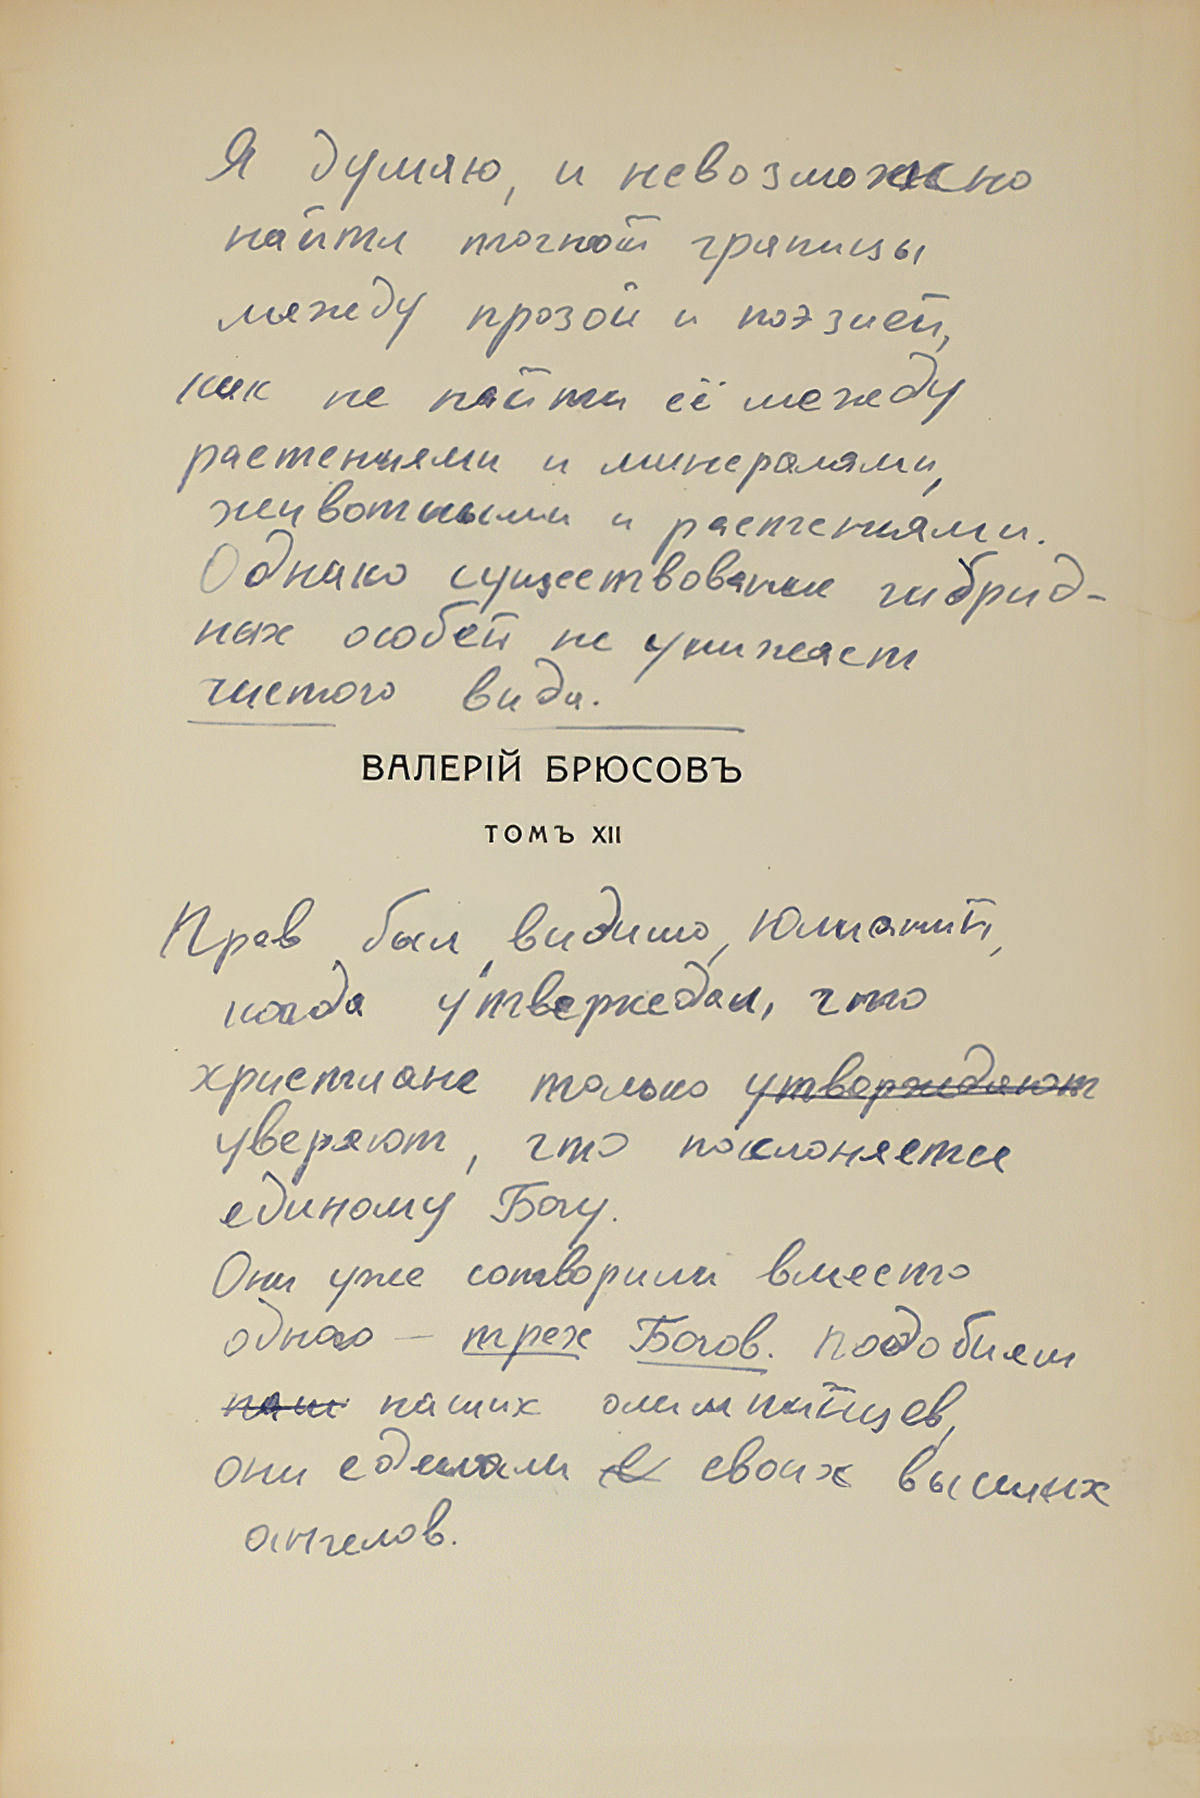 Я думаю, и невозможно
найти точной границы
между прозой и поэзией,
как не найти её между
растениями и минералами,
животными и растениями.
Однако существование гибрид-
ных особей не унижает
чистого вида.
ВАЛЕРІЙ БРЮСОВЪ
ТОМЪ XII
Прав был, видимо, Юлианий,
когда утверждал, что
христиане только утверждают
уверяют, что поклоняется
единому Богу.
Они уже сотворили вместо
одного — трех Богов. Подобием
наши наших олимпийцев,
они сделали в своих высших
ангелов.